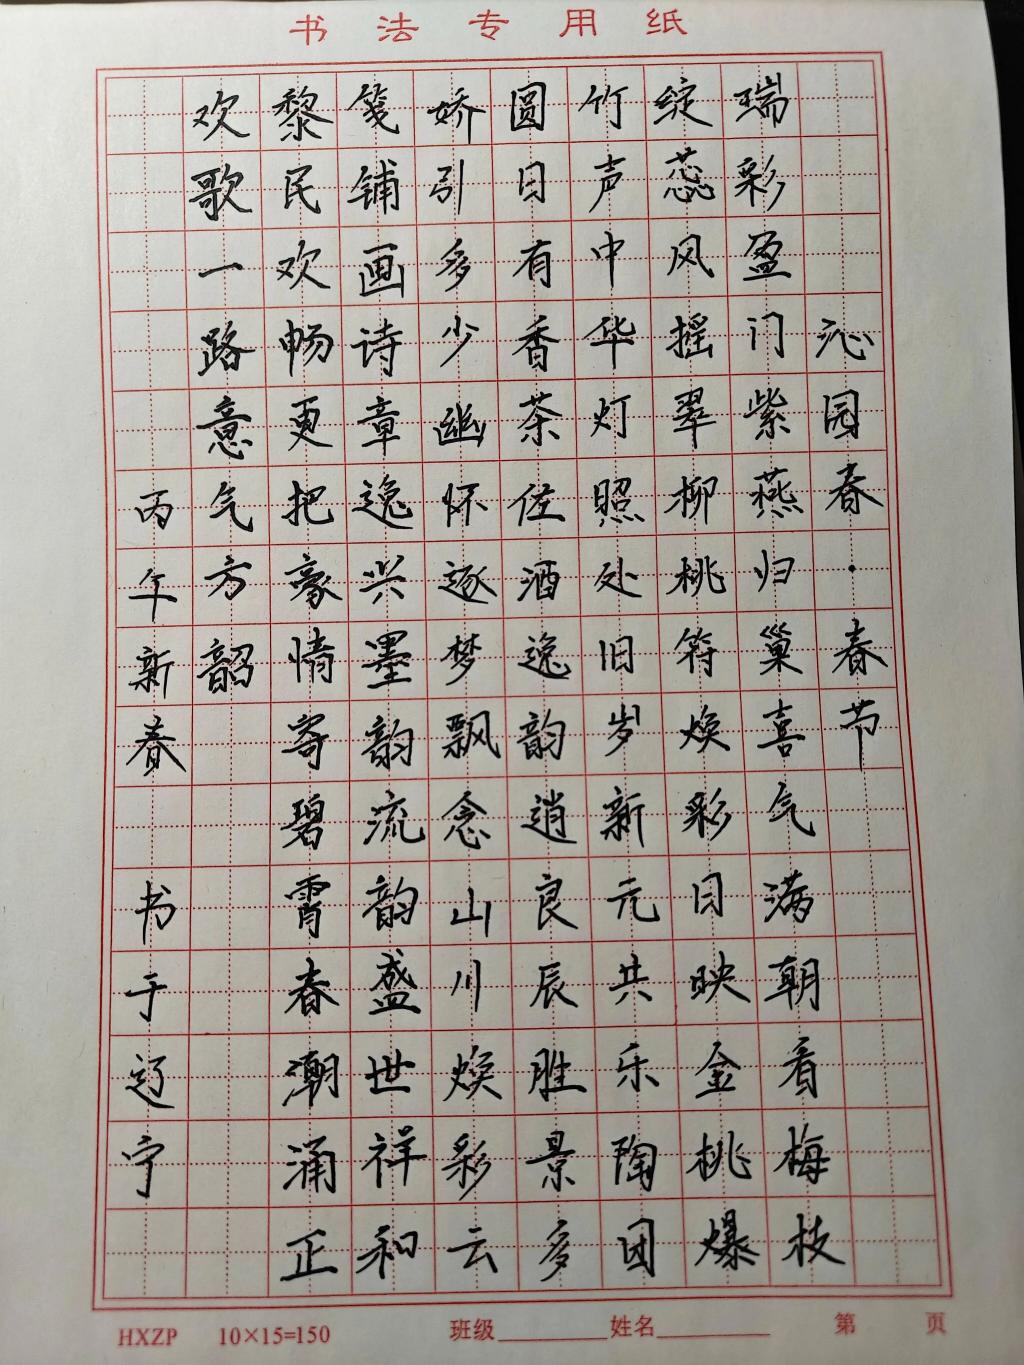 书法专用纸
沁园春·春节
瑞彩盈门紫燕归巢喜气满朝看梅枝
绽蕊风摇翠柳桃符焕彩日映金桃爆
竹声中华灯照处旧岁新元共乐陶团
圆日有香茶佐酒逸韵逍良辰胜景多
娇引多少幽怀逐梦飘念山川焕彩云
笺铺画诗章逸兴墨韵流韵盛世祥和
黎民欢畅更把豪情寄碧霄春潮涌正
欢歌一路意气方韶
丙午新春 书于辽宁
HXZP 10×15=150 班级 姓名 第 页